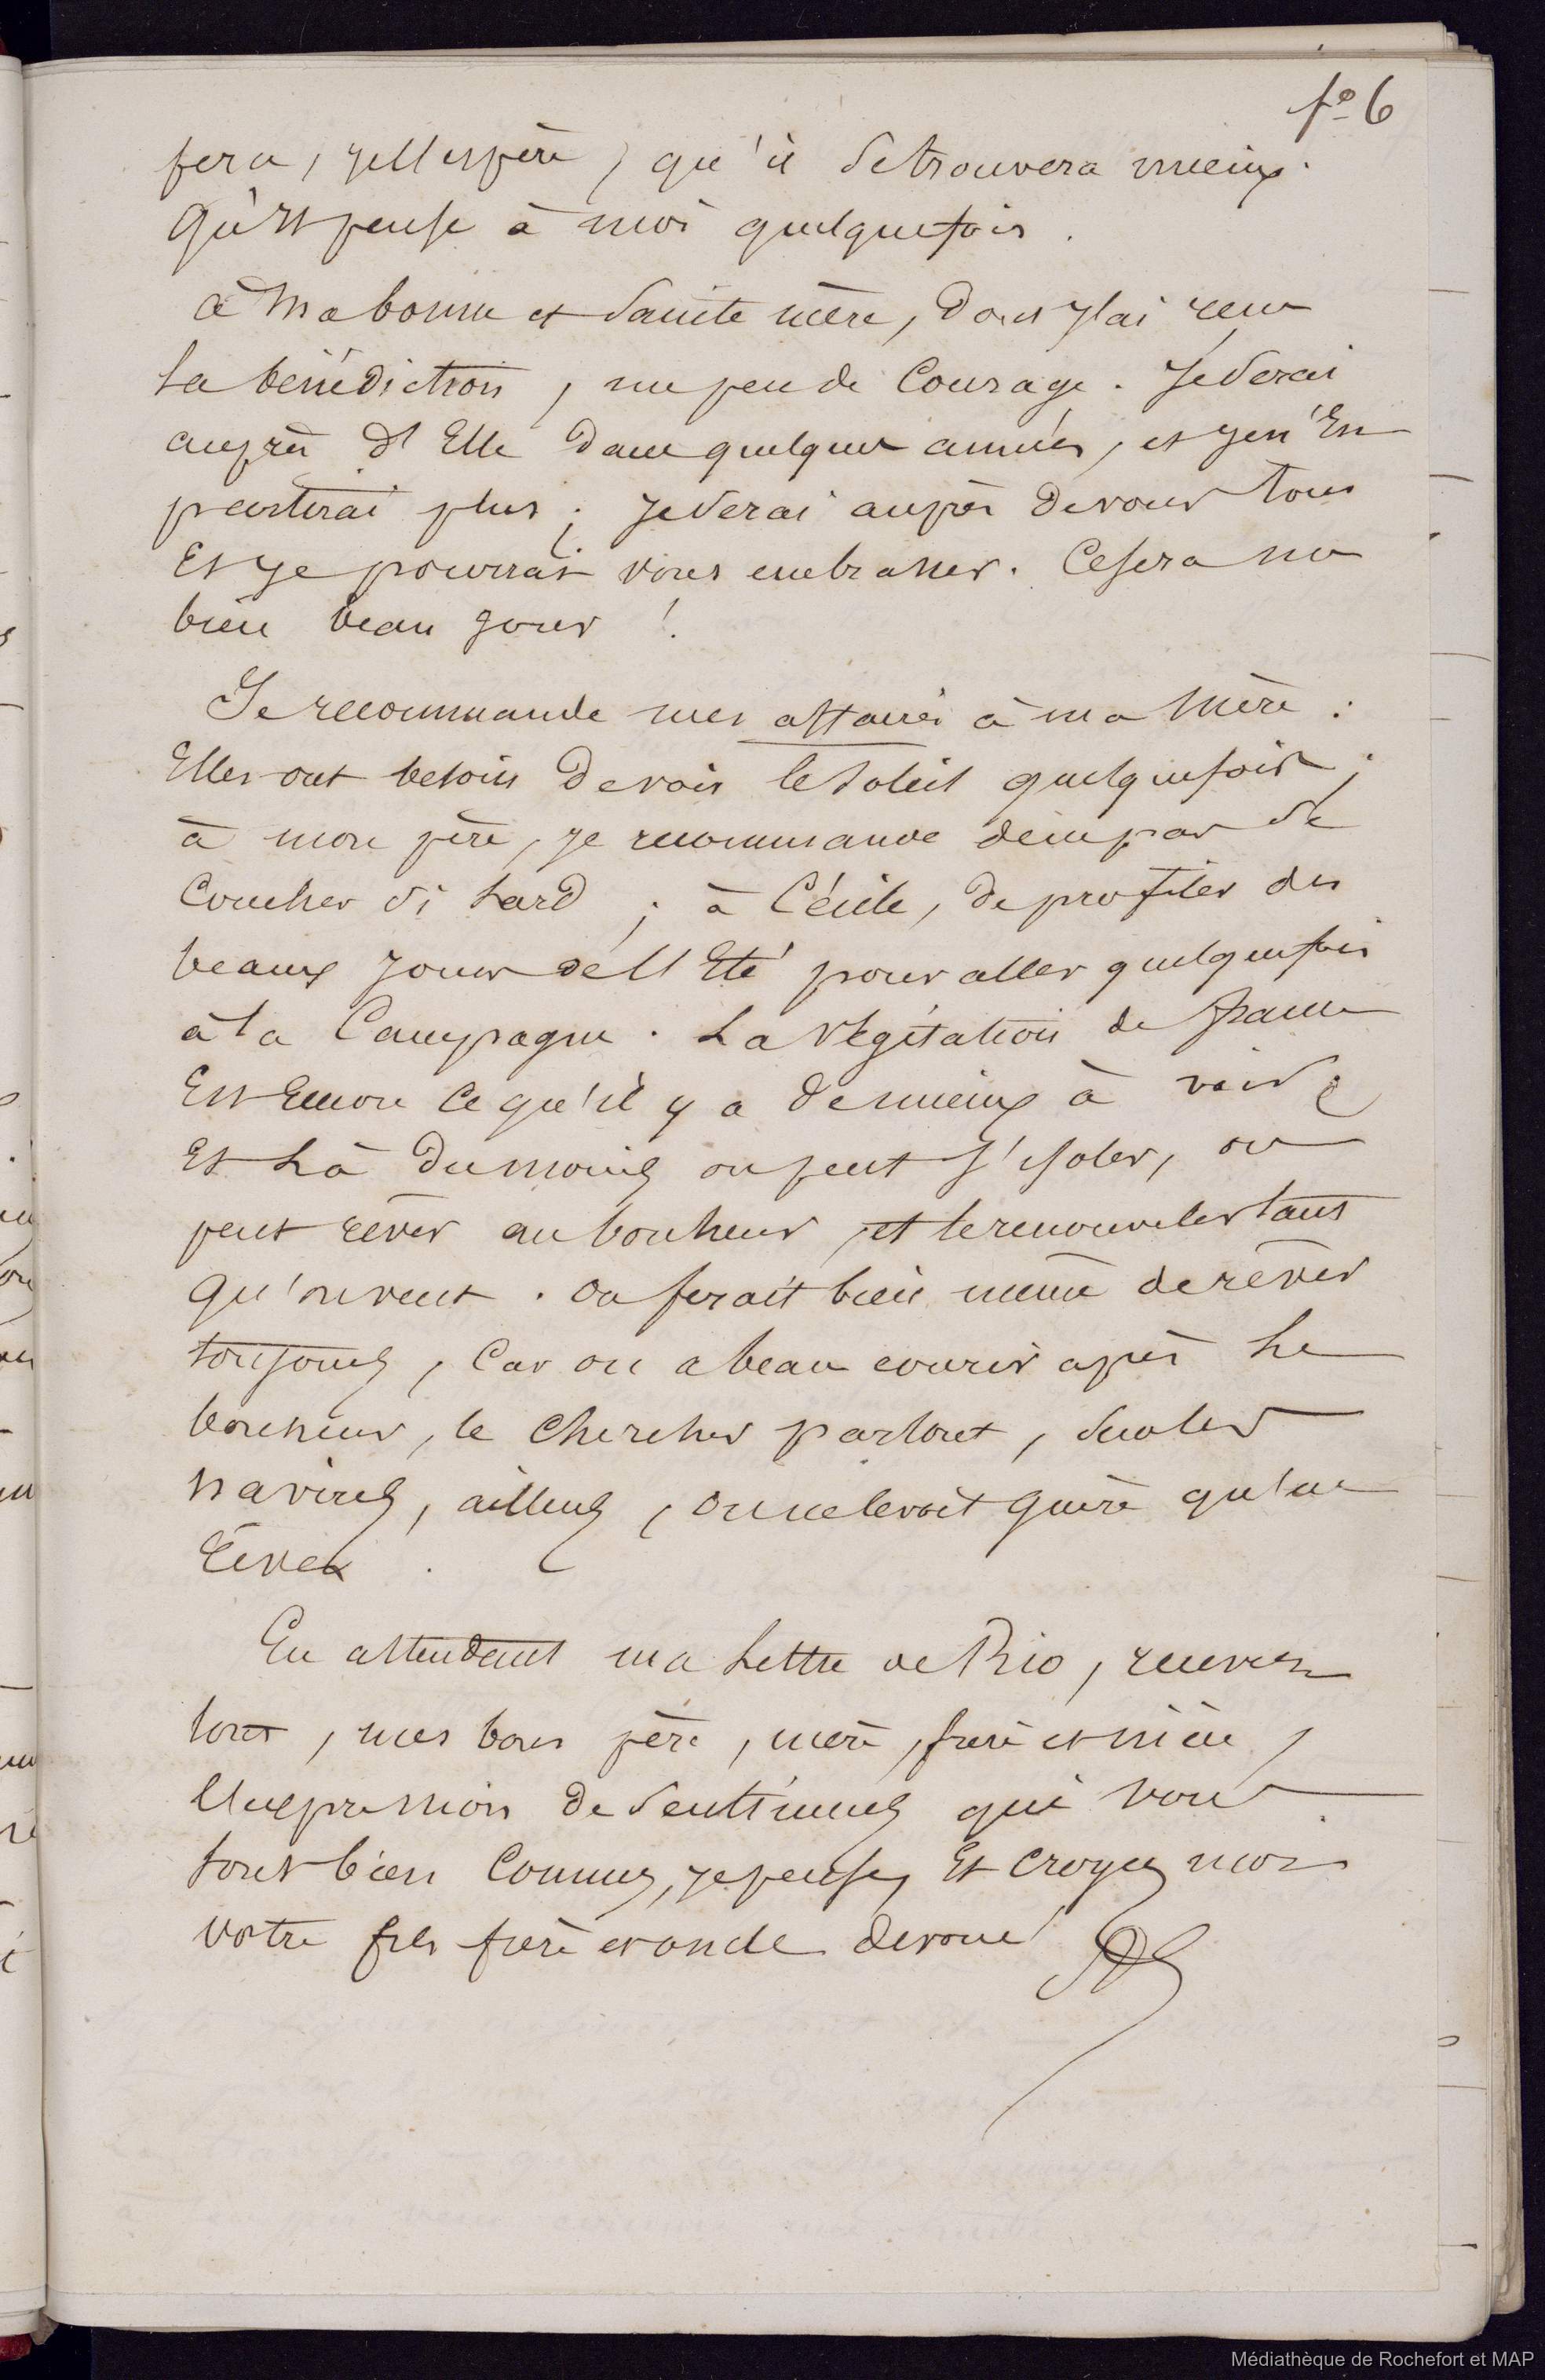 fo 6
fera, je l'espère, qu'il se trouvera mieux.
Qu'il pense à moi quelquefois.
à Ma bonne et Sainte mère, dont j'ai reçu
la bénédiction, un peu de Courage. Je serai
auprès d'Elle dans quelques années, et je n'En
partirai plus ; je serai auprès de vous tous
Et je pourrai vous embrasser. Ce sera un
bien beau jour !
Je recommande mes affaires à ma Mère :
Elles ont besoin de voir le Soleil quelquefois ;
à mon père, je recommande de ne pas se
Coucher si tard ; à Cécile, de profiter des
beaux jours de l'Eté pour aller quelquefois
à la Campagne. La Végétation de france
Est Encore Ce qu'il y a de mieux à voir ;
Et Là du moins on peut s'isoler, on
peut rêver au bonheur, et le renouveler tant
qu'on veut. On ferait bien même de rêver
toujours, Car on a beau courir après Le
bonheur, le Chercher partout, sur les
Navires, ailleurs, on ne le voit guère qu'en
Rêves.
En attendant ma Lettre de Rio, recevez
tous, mes bons père, mère, frère et nièce,
l'expression de Sentiments qui vous
sont bien Connus, je pense, Et Croyez moi
votre fils frère et oncle dévoué
Médiathèque de Rochefort et MAP